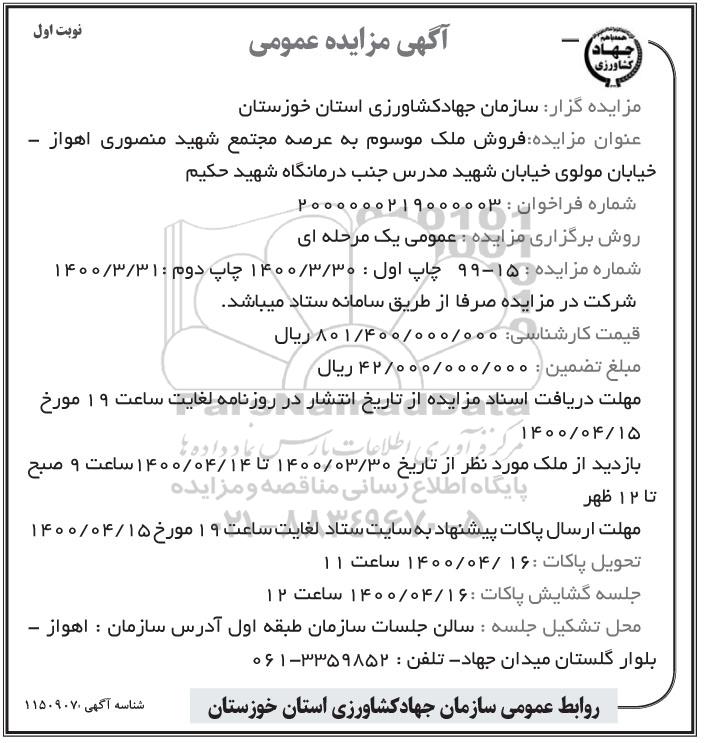 نوبت اول
آگهی مزایده عمومی
همه با هم
جهاد
کشاورزی
مزایده گزار: سازمان جهادکشاورزی استان خوزستان
عنوان مزایده:فروش ملک موسوم به عرصه مجتمع شهید منصوری اهواز -
خیابان مولوی خیابان شهید مدرس جنب درمانگاه شهید حکیم
شماره فراخوان : ۲۰۰۰۰۰۰۲۱۹۰۰۰۰۰۳
روش برگزاری مزایده : عمومی یک مرحله ای
شماره مزایده : ۱۵-۹۹ چاپ اول : ۱۴۰۰/۳/۳۰ چاپ دوم :۱۴۰۰/۳/۳۱
شرکت در مزایده صرفا از طریق سامانه ستاد میباشد.
قیمت کارشناسی: ۸۰۱/۴۰۰/۰۰۰/۰۰۰ ریال
مبلغ تضمین : ۴۲/۰۰۰/۰۰۰/۰۰۰ ریال
مهلت دریافت اسناد مزایده از تاریخ انتشار در روزنامه لغایت ساعت ۱۹ مورخ
۱۴۰۰/۰۴/۱۵
بازدید از ملک مورد نظر از تاریخ ۱۴۰۰/۰۳/۳۰ تا ۱۴۰۰/۰۴/۱۴ساعت ۹ صبح
تا ۱۲ ظهر
مهلت ارسال پاکات پیشنهاد به سایت ستاد لغایت ساعت ۱۹ مورخ ۱۴۰۰/۰۴/۱۵
تحویل پاکات :۱۶ /۱۴۰۰/۰۴ ساعت ۱۱
جلسه گشایش پاکات :۱۴۰۰/۰۴/۱۶ ساعت ۱۲
محل تشکیل جلسه : سالن جلسات سازمان طبقه اول آدرس سازمان : اهواز -
بلوار گلستان میدان جهاد- تلفن : ۳۳۵۹۸۵۲-۰۶۱
روابط عمومی سازمان جهادکشاورزی استان خوزستان
شناسه آگهی :۱۱۵۰۹۰۷
ParsNamadData
مرکز فرآوری اطلاعات پارس نماد داده ها
پایگاه اطلاع رسانی مناقصه و مزایده
۰۲۱-۸۸۳۴۹۶۷۰-۵